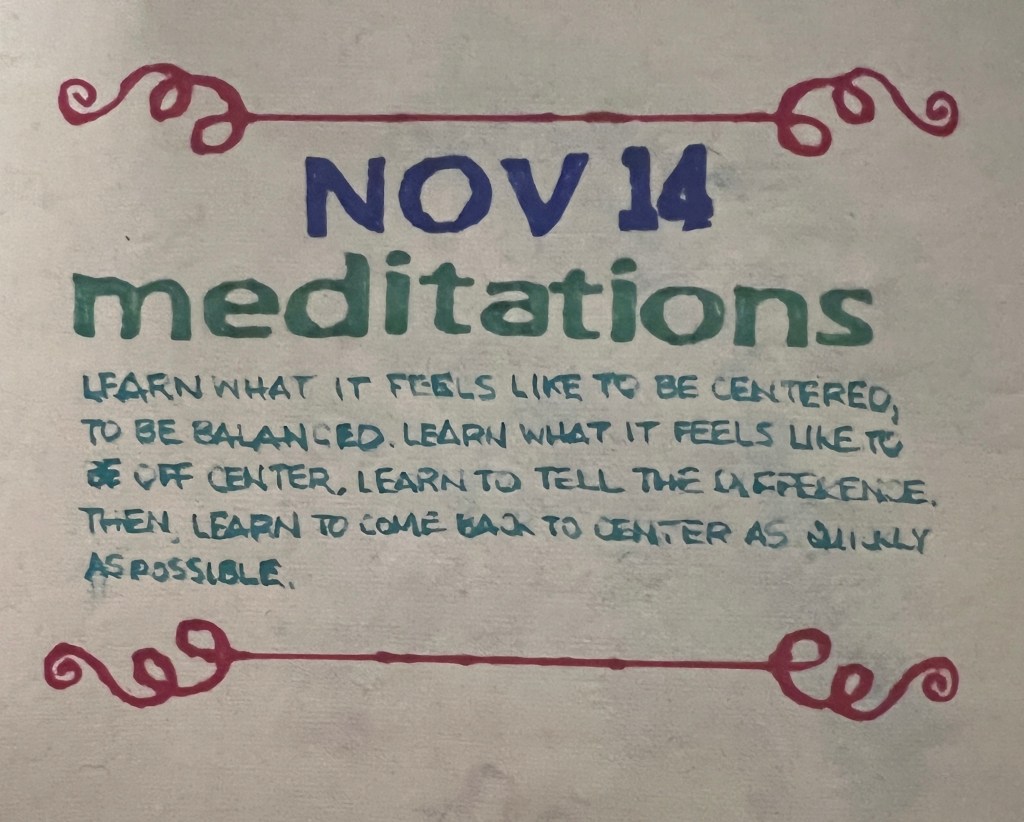 NOV 14
meditations
LEARN WHAT IT FEELS LIKE TO BE CENTERED,
TO BE BALANCED. LEARN WHAT IT FEELS LIKE TO
BE OFF CENTER. LEARN TO TELL THE DIFFERENCE.
THEN, LEARN TO COME BACK TO CENTER AS QUICKLY
AS POSSIBLE.